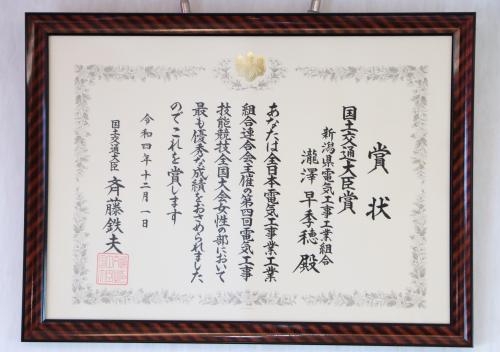 賞状
国土交通大臣賞
新潟県電気工事工業組合
瀧澤早季穂殿
あなたは全日本電気工事業工業
組合連合会主催の第四回電気工事
技能競技全国大会女性の部において
最も優秀な成績をおさめられました
のでこれを賞します
令和四年十二月一日
国土交通大臣 斉藤鉄夫